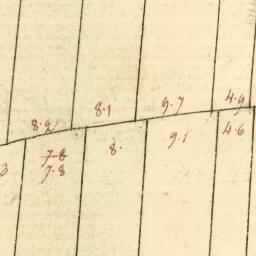 8.2 8.1 9.7 4.9
3 7.8 8. 9.1 4.6
7.8